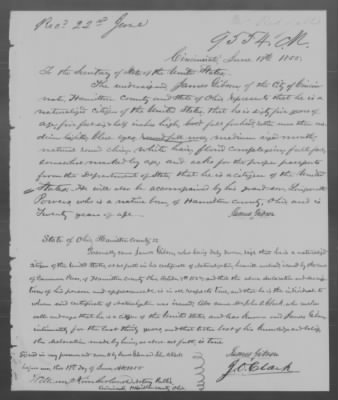 Recd 22nd June
9554. O.M.
Cincinnati, June 19th 1855.
To the Secretary of State of the United States.
The undersigned James Gibson of the City of Cincin-
nati, Hamilton County and State of Ohio represents that he is a
naturalized citizen of the United States, that he is sixty five years of
age, five feet eight inches high, full forehead, rather
blue eyes, round full nose, medium sized mouth,
natural round chin, white hair, florid complexion, full face,
somewhat marked by age, and asks for the proper passports
from the Department of State, that he is a citizen of the United
States. He will also be accompanied by his grandson,
Powers who is a native born, of Hamilton County, Ohio, and is
Twenty years of age.
James Gibson
State of Ohio, Hamilton County ss
Personally came James Gibson, who being duly sworn, says that he is a naturalized
citizen of the United States, as set forth in his certificate of naturalization, issued by the Court
of Common Pleas, of Hamilton County, and that the above declaration and descrip-
tion of his person and appearance, is in all respects true, and that he is the individual to
whom said certificate of naturalization was issued; Also came J. C. Clark who makes
oath and says that he is a citizen of the United States and has known said James Gibson
intimately for the last thirty years, and that to the best of his knowledge and belief,
the declaration made by him, as above set forth, is true.
Signed in my presence and sworn to by
before me this 19th day of June,
James Gibson
J. C. Clark
William Notary Public
Cincinnati Hamilton County, Ohio